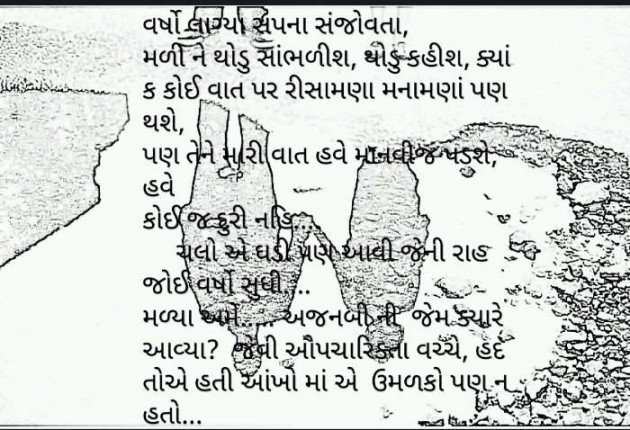 વર્ષો લાગ્યા સપના સંજોવતા,
મળી ને થોડુ સાંભળીશ, થોડું કહીશ, ક્યાં
ક કોઈ વાત પર રીસામણા મનામણાં પણ
થશે,
પણ તેને મારી વાત હવે માનવીજ પડશે,
હવે
કોઈ જ દુરી નહિ...
ચલો એ ઘડી પણ આવી જેની રાહ
જોઈ વર્ષો સુધી....
મળ્યા અમે..... અજનબી ની જેમ ક્યારે
આવ્યા? જેવી ઔપચારિકતા વચ્ચે, હદ
તોએ હતી આંખો માં એ ઉમળકો પણ ન
હતો...